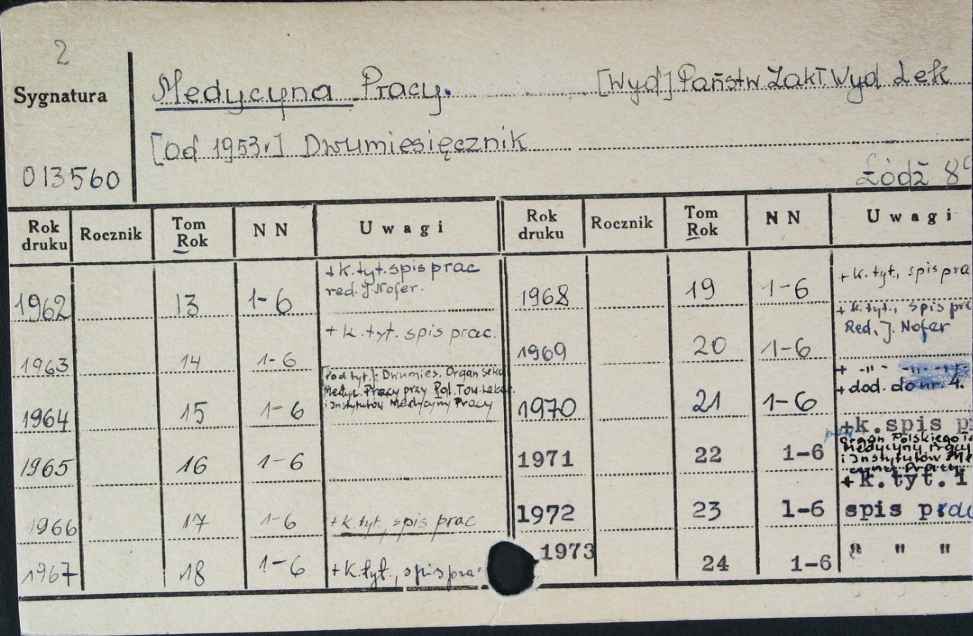 2
Sygnatura
Medycyna Pracy. [Wyd] Państw Zakł Wyd Lek
[od 1953r.] Dwumiesięcznik
013560
Łódź 8°
Rok druku Rocznik Tom Rok NN Uwagi Rok druku Rocznik Tom Rok NN Uwagi
1962 13 1-6 +k.tyt. spis prac red. J Nofer.
1963 14 1-6 +k.tyt. spis prac.
1964 15 1-6 Pod tyt.: Dwumies. Organ Sekc Medyc. Pracy przy Pol. Tow. Lekar. i Instytutów Medycyny Pracy
1965 16 1-6
1966 17 1-6 +k.tyt, spis prac
1967 18 1-6 +k.tyt., spis pra
1968 19 1-6 +k.tyt, spis pra
1969 20 1-6 +k.tyt., spis pra Red. J. Nofer
1970 21 1-6 + -"- -"- +dod. do nr. 4.
1971 22 1-6 +k.spis p organ Polskiego To Medycyny Pracy i Instytutów Me
1972 23 1-6 +k.tyt.i spis prac
1973 24 1-6 " " "